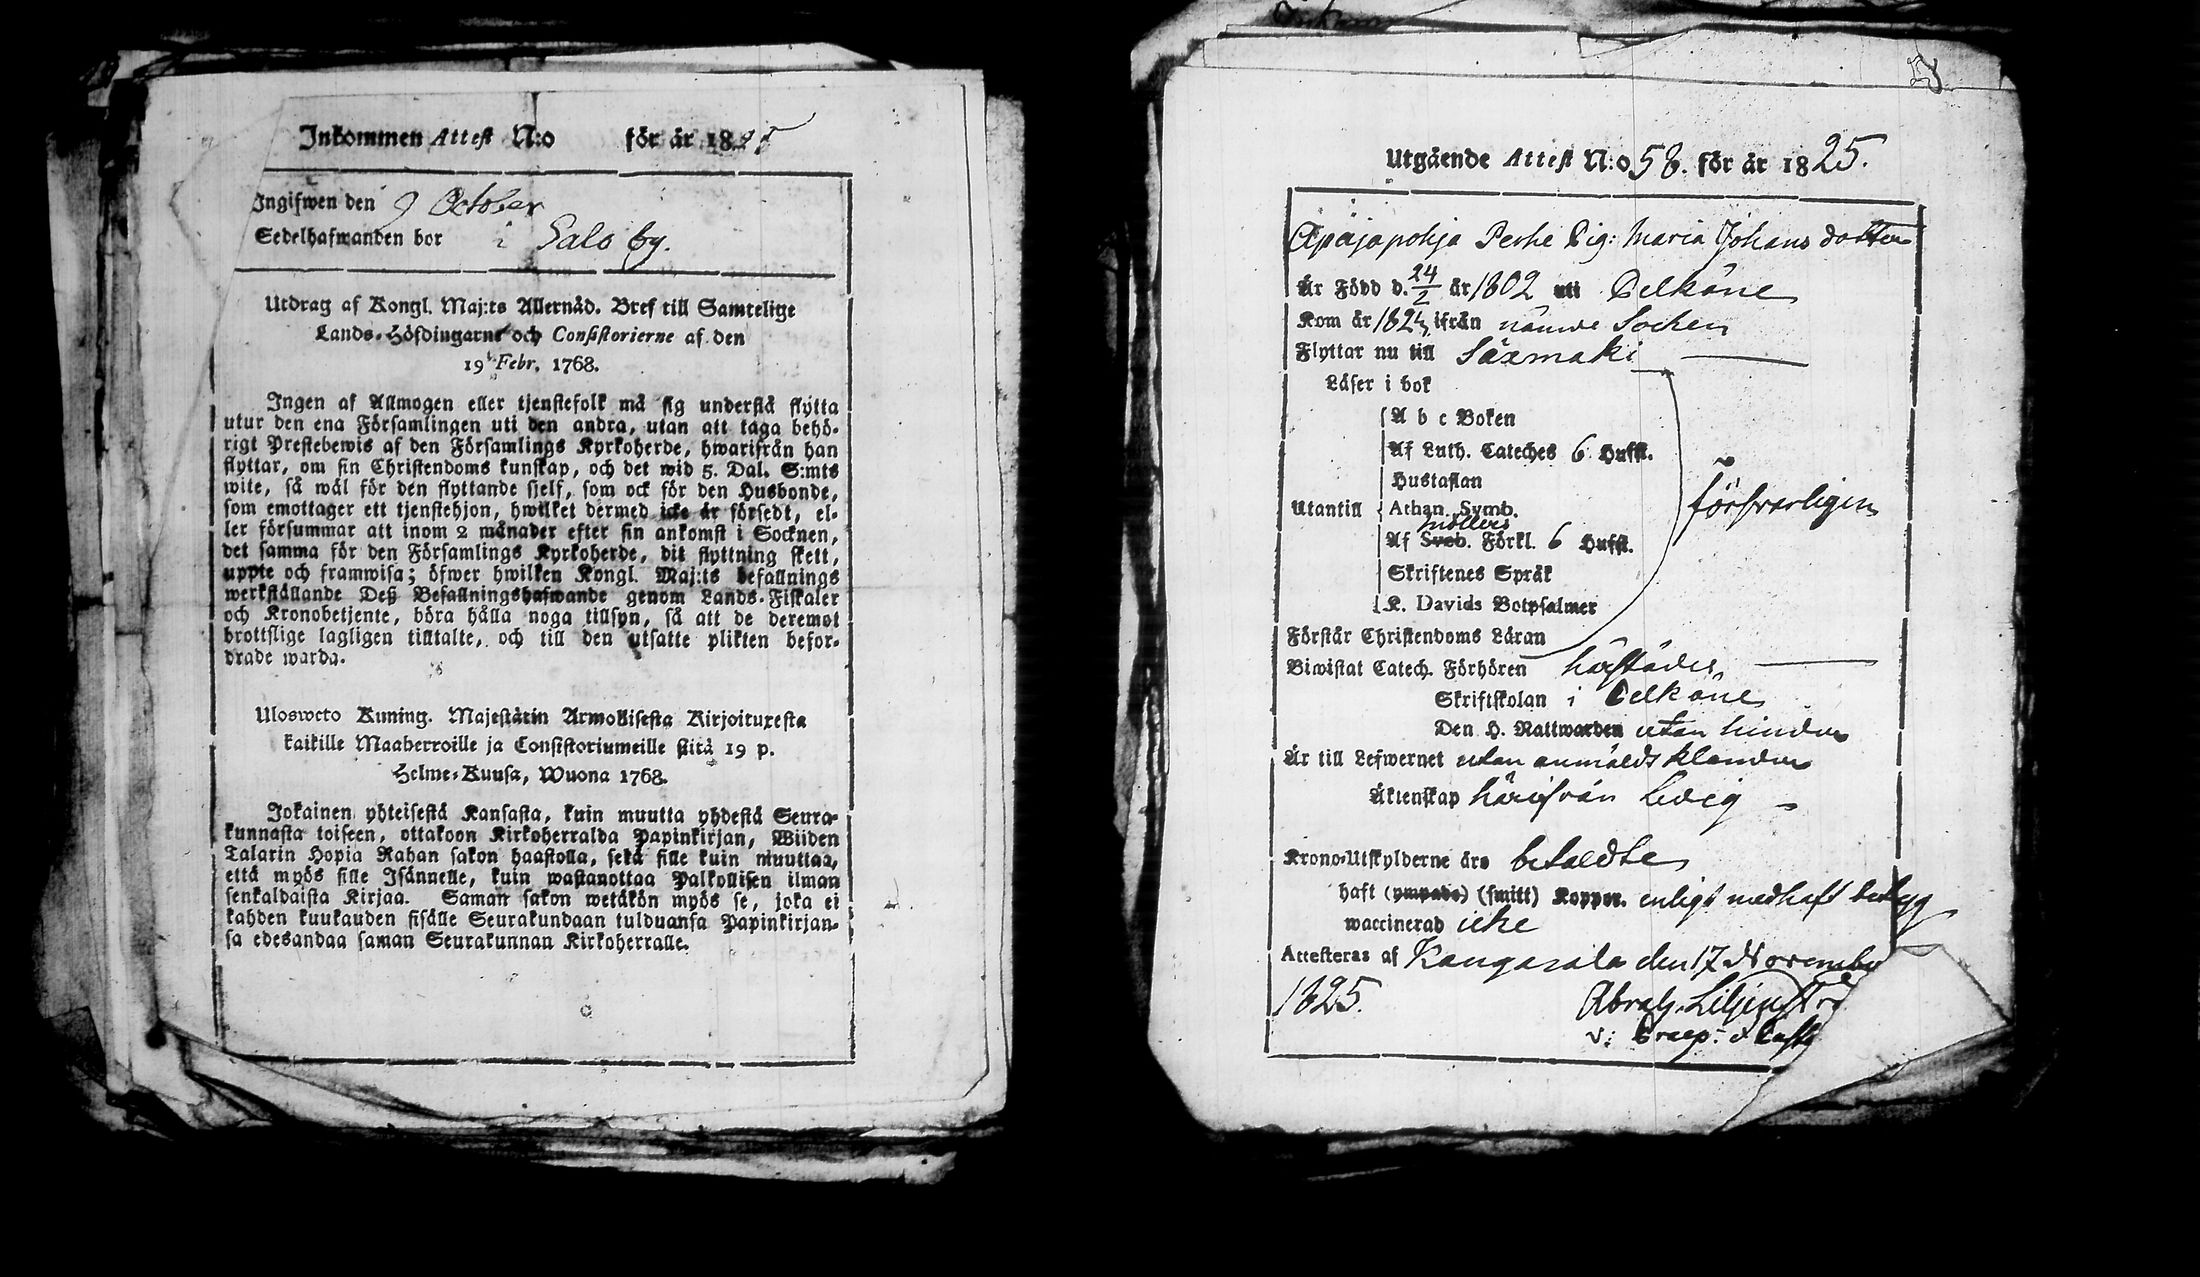 Inkommen Attest N:o för år 1825
Ingifwen den 9 October
Sedelhafwanden bor i Salo by.
Utdrag af Kongl. Maj:ts Allernåd. Bref till Samtelige
Lands-Höfdingarne och Consistorierne af den
19 Febr. 1768.
Ingen af Allmogen eller tjenstefolk må sig understå flytta
utur den ena Församlingen uti den andra, utan att taga behö-
rigt Prestebewis af den Församlings Kyrkoherde, hwarifrån han
flyttar, om sin Christendoms kunskap, och det wid 5. Dal. S:mts
wite, så wäl för den flyttande sjelf, som ock för den Husbonde,
som emottager ett tjenstehjon, hwilket dermed icke är försedt, el-
ler försummar att inom 2 månader efter sin ankomst i Socknen,
det samma för den Församlings Kyrkoherde, dit flyttning skett,
uppte och framwisa; öfwer hwilken Kongl. Maj:ts befallnings
werkställande Deß Befallningshafwande genom Lands-Fiskaler
och Kronobetjente, böra hålla noga tillsyn, så att de deremot
brottslige lagligen tilltalte, och till den utsatte plikten befor-
drade warda.
Ulosweto Kuning. Majestätin Armollisesta Kirjoituxesta
kaikille Maaherroille ja Consistoriumeille siitä 19 p.
Helme-Kuusa, Wuona 1768.
Jokainen yhteisestä Kansasta, kuin muutta yhdestä Seura-
kunnasta toiseen, ottakoon Kirkoherralda Papinkirjan, Wiiden
Talarin Hopia Rahan sakon haastolla, sekä sille kuin muuttaa,
että myös sille Isännelle, kuin wastanottaa Palkollisen ilman
senkaldaista Kirjaa. Saman sakon wetäkön myös se, joka ei
kahden kuukauden sisälle Seurakundaan tulduansa Papinkirjan-
sa edesandaa saman Seurakunnan Kirkoherralle.
58
Utgående Attest N:o 58. för år 1825.
Apajapohja Perhe Pig: Maria Johans dotter
Är Född d. 24/2 år 1802 uti Pelkäne
Kom år 1824 ifrån nämde Socken
Flyttar nu till Säxmäki
Läser i bok
A b c Boken
Af Luth. Cateches 6 Hufst.
Hustaflan
Utantill Athan. Symb.
Möllers
Af Sveb. Förkl. 6 Hufst.
Skriftenes Språk
K. Davids Botpsalmer
försvarligen
Förstår Christendoms Läran
Biwistat Catech. Förhören härstädes
Skriftskolan i Pelkäne
Den H. Nattwarden utan hinder
Är till Lefwernet utan anmäldt klander
Äktenskap härifrån ledig
Krono-Utskylderne äro betaldte
haft (ympade) (smitt) Koppor. enligt medhaft betyg
waccinerad icke
Attesteras af Kangasala den 17 November
1825. Abrah. Liljenstr
v: Praep: &